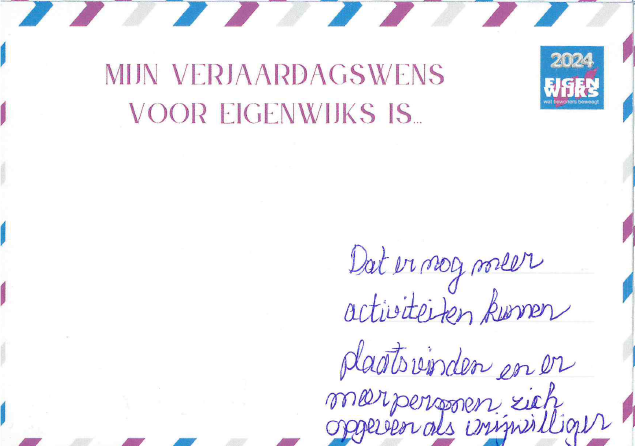 MIJN VERJAARDAGSWENS
VOOR EIGENWIJKS IS...
2024
EIGEN
WIJKS
wat bewoners beweegt
Dat er nog meer
activiteiten kunnen
plaatsvinden en er
meer personen zich
opgeven als vrijwilliger